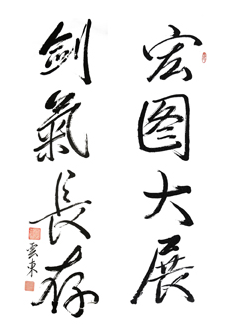 宏图大展
剑氣長存
雲東